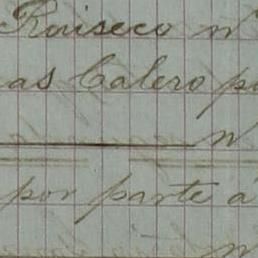 Rouseco nº
as Calero po
n
por parte á